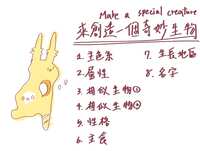 Make a special creature
來創造一個奇妙生物
1. 主色系
2. 屬性
3. 相似生物①
4. 相似生物②
5. 性格
6. 主食
7. 生長地區
8. 名字